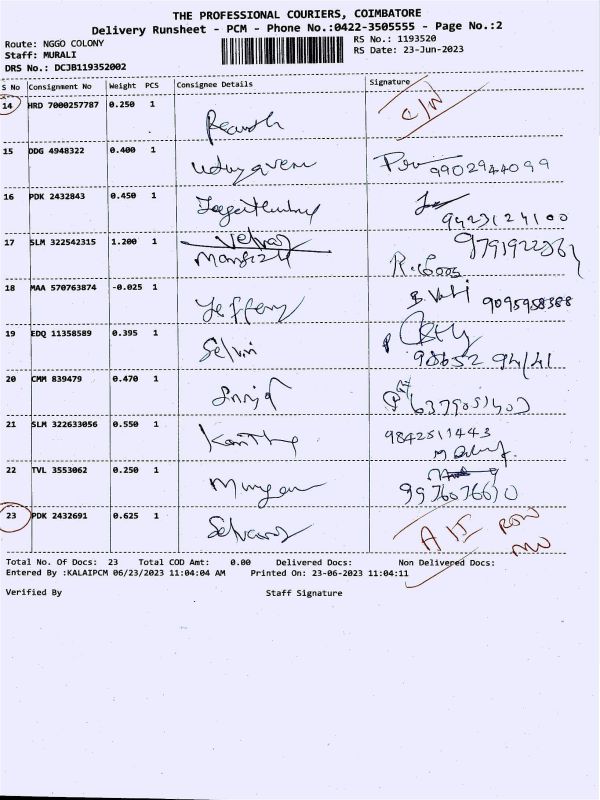 THE PROFESSIONAL COURIERS, COIMBATORE
Delivery Runsheet - PCM - Phone No.:0422-3505555 - Page No.:2
Route: NGGO COLONY RS No.: 1193520
Staff: MURALI RS Date: 23-Jun-2023
DRS No.: DCJB119352002
S No Consignment No Weight PCS Consignee Details Signature
14 HRD 7000257787 0.250 1
15 DDG 4948322 0.400 1 9902944099
16 PDK 2432843 0.450 1 9423124100
17 SLM 322542315 1.200 1
18 MAA 570763874 -0.025 1 Jeffery 9095958388
19 EDQ 11358589 0.395 1 Selvi 98652 94141
20 CMM 839479 0.470 1
21 SLM 322633056 0.550 1 9842511443
22 TVL 3553062 0.250 1 Murugan
23 PDK 2432691 0.625 1 Selvaraj
Total No. Of Docs: 23 Total COD Amt: 0.00 Delivered Docs: Non Delivered Docs:
Entered By :KALAIPCM 06/23/2023 11:04:04 AM Printed On: 23-06-2023 11:04:11
Verified By Staff Signature